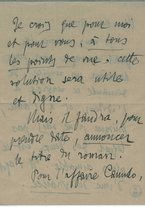 Je crois que pour moi
et pour vous, à tous
les points de vue, cette
solution sera utile
et digne.
Mais il faudra, pour
prendre date, annoncer
le titre du roman.
Pour l'affaire